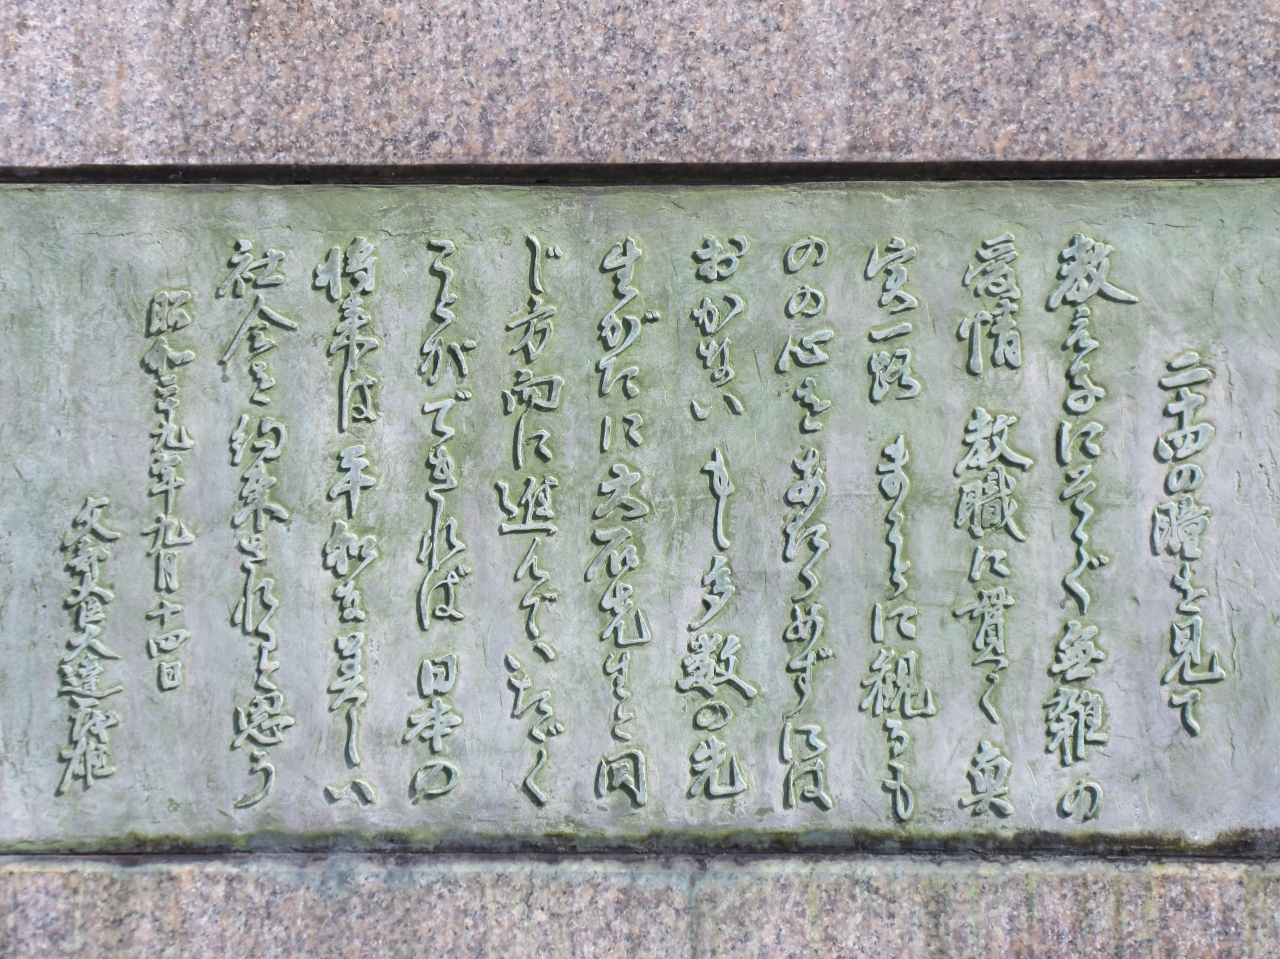 二十四の瞳を見て
教え子にそゝぐ無雑の
愛情 教職に貫く真
実一路 まことに観るも
のの心をあらためずには
おかない もし多数の先
生がたに大石先生と同
じ方向に進んでいたゞく
ことができれば 日本の
将来は平和な美しい
社会を約束されると思う
昭和二十九年九月十四日
文部大臣大達茂雄